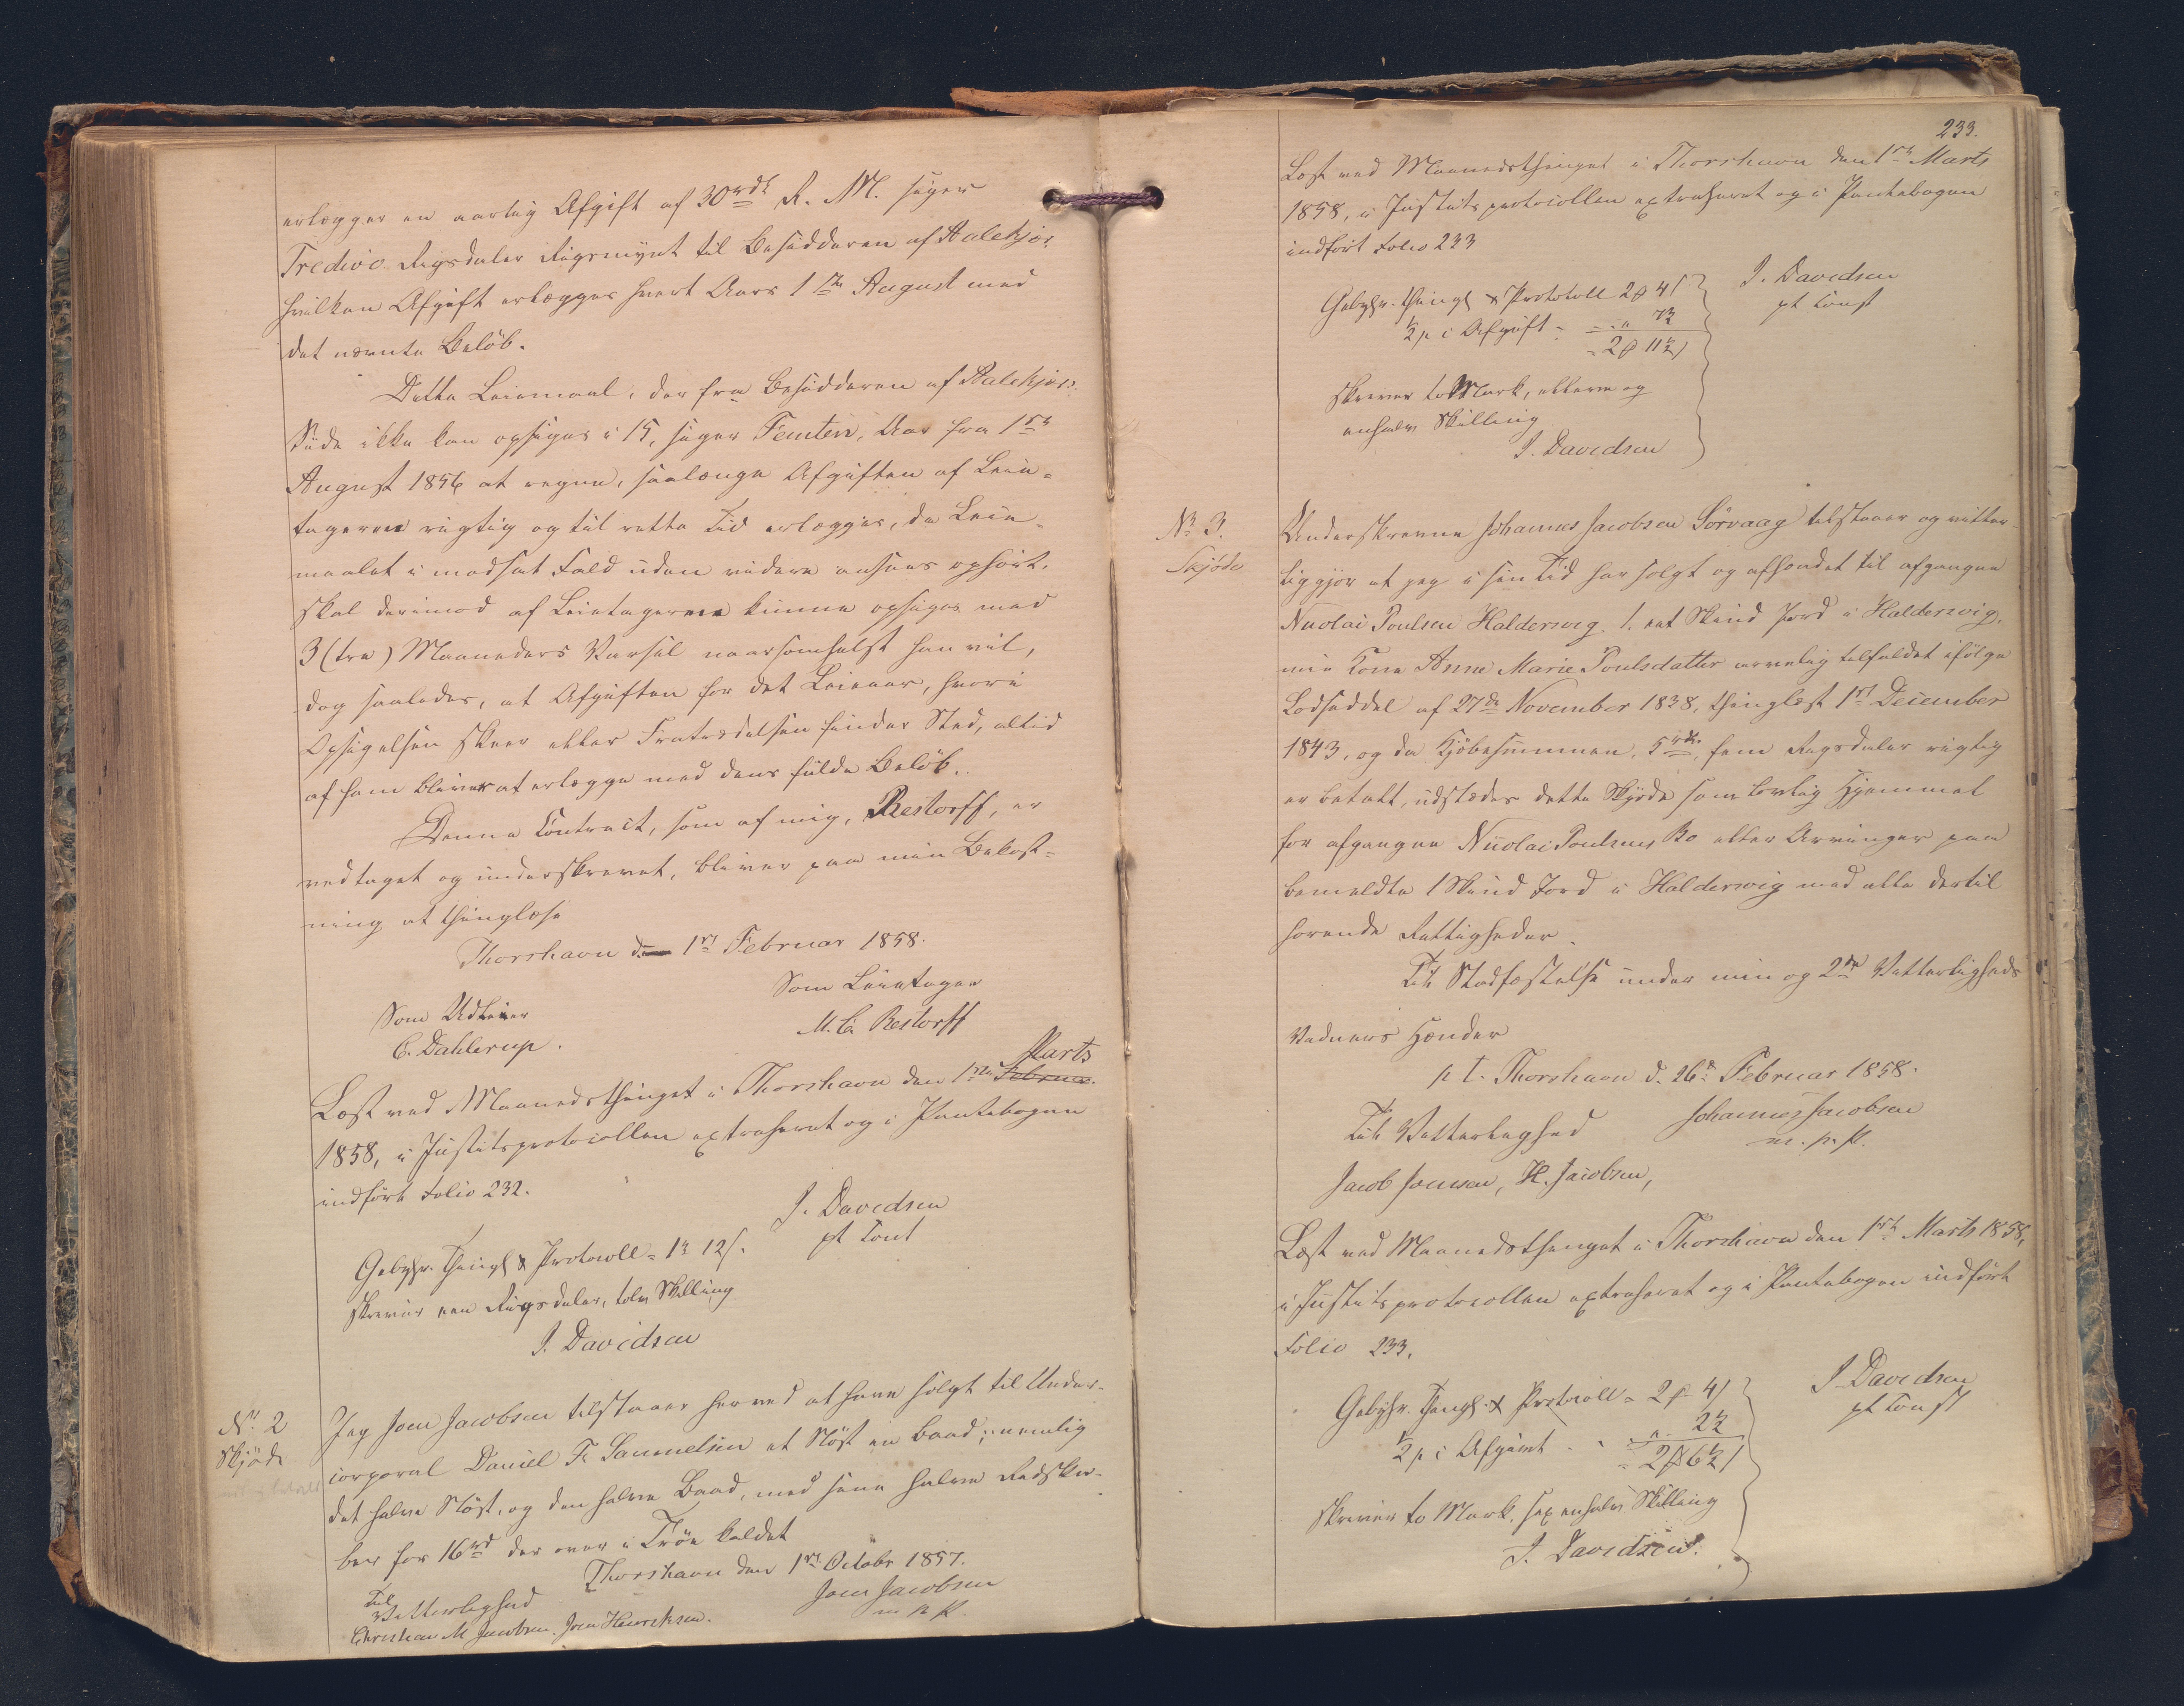 erlægger en aarlig Afgift af 30 rdl R. M. siger
Tredive Rigsdaler Rigsmynt til Besidderen af Aalekjær
hvilken Afgift erlægges hvert Aars 1ste August med
det nævnte Beløb.
Dette Leiemaal, der fra Besidderen af Aalekjærs
Side ikke kan opsiges i 15, siger Femten, Aar fra 1ste
August 1856 at regne, saalænge Afgiften af Leie-
tageren rigtig og til rette Tid erlægges, da Leie-
maalet i modsat Fald uden videre ansees ophørt,
skal derimod af Leietageren kunne opsiges med
3 (tre) Maaneders Varsel naarsomhelst han vil,
dog saaledes, at Afgiften for det Leieaar, hvori
Opsigelsen skeer eller Fratrædelsen finder Sted, altid
af ham bliver at erlægge med dens fulde Beløb.
Denne Contract, som af mig, Restorff, er
vedtaget og underskrevet, bliver paa min Bekost-
ning at thinglæse
Thorshavn d. 1st Februar 1858.
Som Leietager
Som Udleier
M. C. Restorff
C. Dahlerup.
Marts
Læst ved Maanedsthinget i Thorshavn den 1ste Februar
1858, i Justitsprotocollen extraheret og i Pantebogen
indført Folio 232.
J. Davidsen
pt Const
Gebyhr. Thingl & Protocoll = 1 rd 12 s.
skriver een Rigsdaler, tolv Skilling
J. Davidsen
No 2
Skjøde
Jeg Joen Jacobsen tilstaaer herved at have solgt til Under-
corporal Daniel Fr Samuelsen et Nøst en Baad; nemlig
det halve Nøst, og den halve Baad, med sine halve Redska-
ber for 16 rd der over i Trøe kaldet
Thorshavn den 1st Octobr 1857.
Til
Vitterlighed
Joen Jacobsen
m. p. p.
Christian M Jacobsen. Joen Henrichsen.
233.
Læst ved Maanedsthinget i Thorshavn den 1ste Marts
1858, i Justitsprotocollen extraheret og i Pantebogen
indført Folio 233
J. Davidsen
pt Const
Gebyhr. Thingl & Protokoll 2 p 4 s
1/2 p c Afgift - - " 7 1/2
= 2 p 11 1/2 s
skriver to Mark, elleve og
enhalv Skilling
J. Davidsen
No 3.
Skjøde
Underskrevne Johannes Jacobsen Sörvaag tilstaaer og vitter-
liggjør at jeg i sin Tid har solgt og afhændet til afgangne
Nicolai Poulsen Haldersvig 1. eet Skind Jord i Haldersvig,
min Kone Anne Marie Poulsdatter arvelig tilfaldet ifølge
Lodseddel af 27de November 1838, thinglæst 1st December
1843, og da Kjøbesummen, 5 rd. fem Rigsdaler rigtig
er betalt, udstædes dette Skjøde som lovlig Hjemmel
for afgangne Nicolai Poulsens Bo eller Arvinger paa
bemeldte 1 Skind Jord i Haldersvig med alle dertil
hørende Rettigheder.
Til Stadfæstelse under min og 2de Vitterligheds
Vidners Hænder
p. t. Thorshavn d. 26d Februar 1858.
Til Vitterlighed
Johannes Jacobsen
m. p. p.
Jacob Joensen, H. Jacobsen,
Læst ved Maanedsthinget i Thorshavn den 1ste Marts 1858,
i Justitsprotocollen extraheret og i Pantebogen indført
Folio 233.
J Davidsen
pt Const
Gebyhr. Thingl. & Protocoll = 2 p 4 s
1/2 p c Afgivt - " 2 1/2
= 2 p 6 1/2 s
skriver to Mark, sex enhalv Skilling
J. Davidsen.